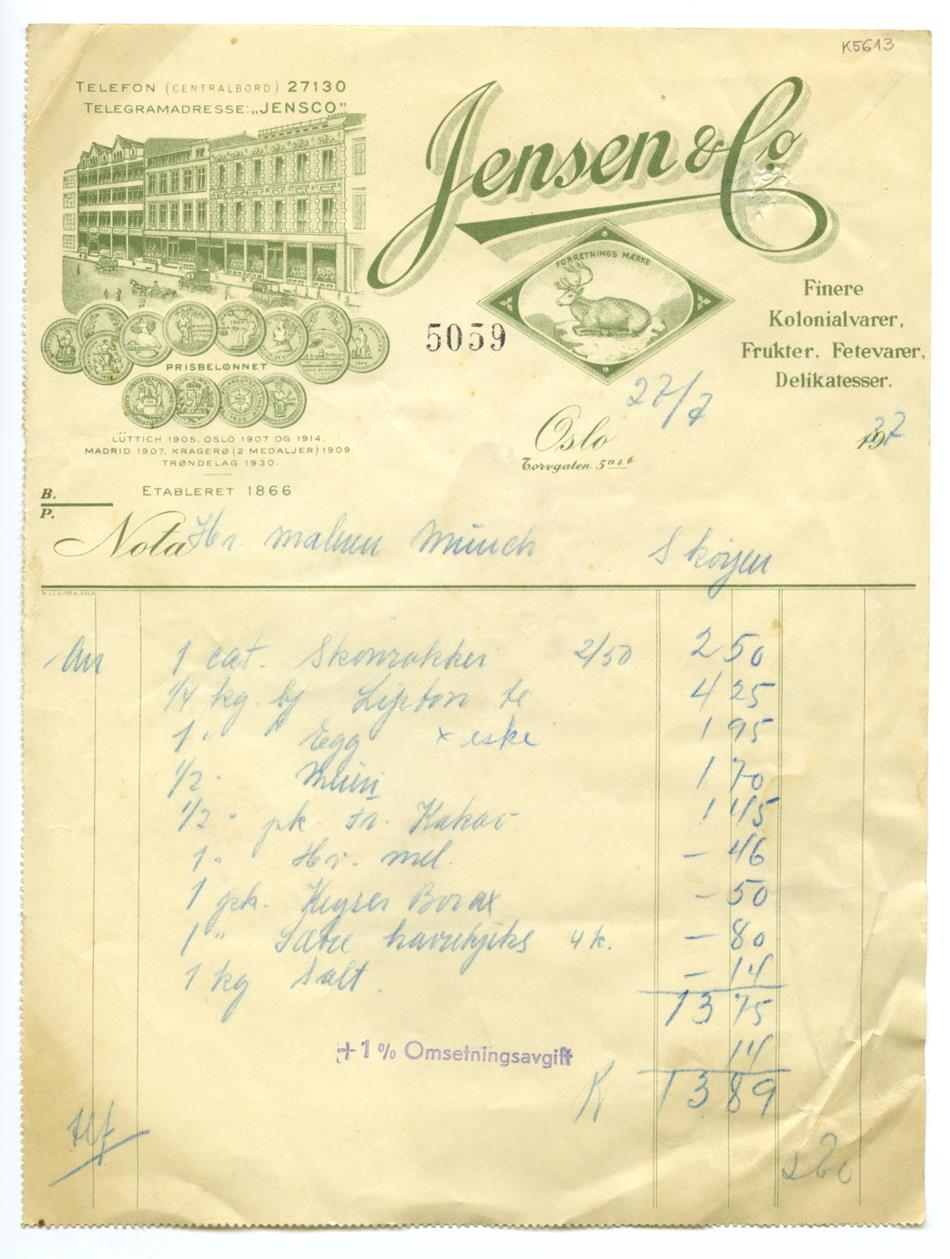 K5613
TELEFON (CENTRALBORD) 27130
TELEGRAMADRESSE: „JENSCO"
Jensen & Co
FORRETNINGS MÆRKE
Finere
Kolonialvarer,
Frukter, Fetevarer,
Delikatesser.
5059
PRISBELØNNET
LÜTTICH 1905, OSLO 1907 OG 1914,
MADRID 1907, KRAGERØ (2 MEDALJER) 1909,
TRØNDELAG 1930.
ETABLERET 1866
27/7
Oslo 1937
Torvgaten 5 a & b
B.
P.
Nota Hr. maleren Munch Skøyen
1 cat. Skonrokker 2/50 2 50
1/4 kg. Lipton te 4 25
1 " Egg x eske 1 95
1/2 " 1 70
1/2 " pk. Fr. Kakao 1 45
1 " Hv. mel. - 46
1 pk. Keyser Borax - 50
1 " Sætre havrekjeks 4 k. - 80
1 kg Salt. - 14
13 75
+ 1 % Omsetningsavgift 14
K 13 89